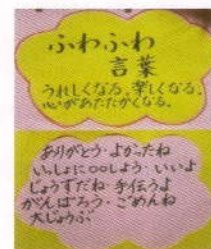 ふわふわ
言葉
うれしくなる。楽しくなる。
心があたたかくなる。
ありがとう・よかったね
いっしょに○○しよう・いいよ
じょうずだね・手伝うよ
がんばろう・ごめんね
大じょうぶ